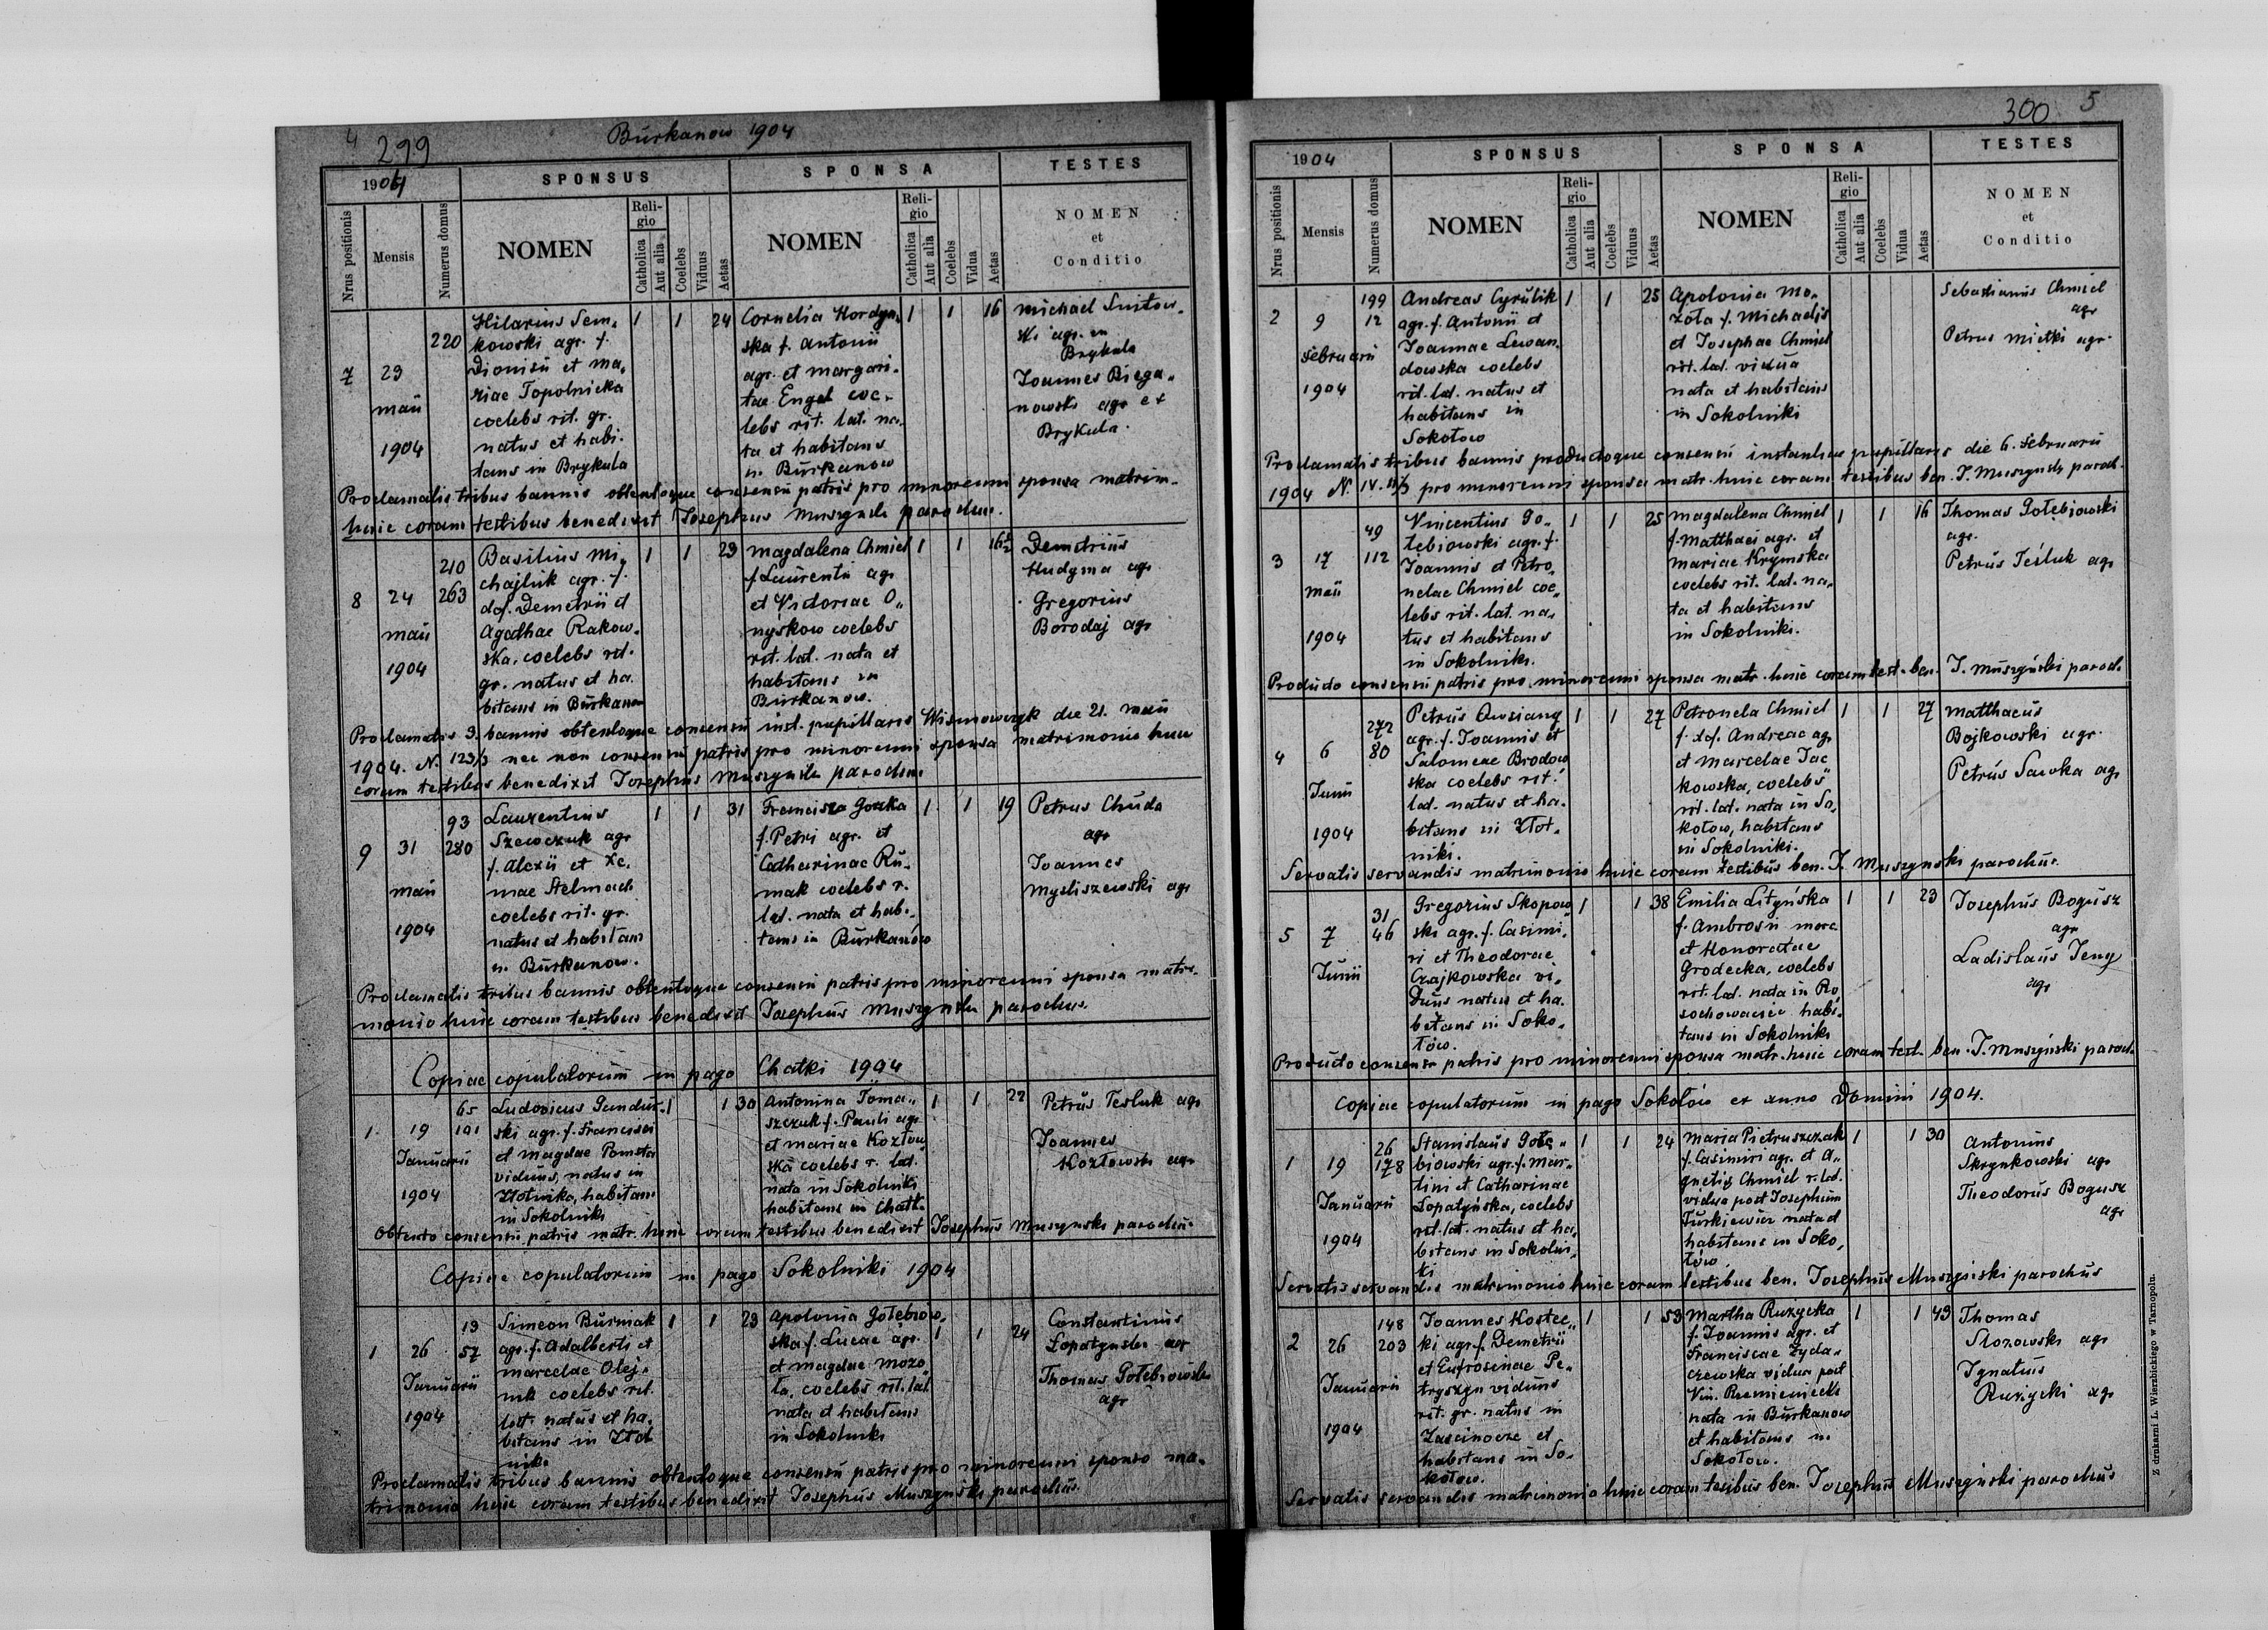 4 299
Burkanow 1904
1904
SPONSUS
SPONSA
TESTES
Nrus positionis
Mensis
Numerus domus
NOMEN
Religio
Catholica
Aut alia
Coelebs
Viduus
Aetas
NOMEN
Religio
Catholica
Aut alia
Coelebs
Vidua
Aetas
NOMEN
et
Conditio
7
23
maii
1904
220
Hilarius Sem„
kowski agr. f.
Dionisii et ma„
riae Topolnicka
coelebs rit. gr.
natus et habi„
tans in Brykula
1 1 24
Cornelia Hordyn„
ska f. Antonii
agr. et margari„
tae Engel coe„
lebs rit. lat. na„
ta et habitans
in Burkanow
1 1 16
Michael
ki agr. in
Brykula
Joannes Biega„
nowski agr ex
Brykula.
Proclamatis tribus bannis obtentoque consensu patris pro minorenni sponsa matrim.
huic coram testibus benedixit Josephus Muszynski parochus.
8
24
maii
1904
210
263
Basilius Mi„
chajluk agr. f.
def. Demetrii et
Agathae Rakow„
ska, coelebs rit.
gr. natus et ha„
bitans in Burkanow
1 1 23
Magdalena Chmiel
f. Laurentii agr
et Victoriae O„
nyskow coelebs
rit. lat. nata et
habitans in
Burkanow.
1 1 16
Demetrius
Hudyma agr
Gregorius
Borodaj agr
Proclamatis 3. bannis obtentoque consensu inst. pupillaris Wisniowczyk die 21. maii
1904. N. 123/3 nec non consensu patris pro minorenni sponsa matrimonio huic
coram testibus benedixit Josephus Muszynski parochus
9
31
maii
1904
93
280
Laurentius
Szewczuk agr
f. Alexii et Xe„
niae Stelmach
coelebs rit. gr.
natus et habitans
in Burkanow.
1 1 31
Francisca Gorka
f. Petri agr. et
Catharinae Ru„
mak coelebs r.
lat. nata et habi„
tans in Burkanów
1 1 19
Petrus Chuda
agr
Joannes
Mysliszewski agr
Proclamatis tribus bannis obtentoque consensu patris pro minorenni sponsa matri„
monio huic coram testibus benedixit Josephus Muszynski parochus.
Copiae copulatorum in pago Chatki 1904
1.
19
Januarii
1904
65
191
Ludovicus
ski agr. f. Francisci
et Magdae
viduus, natus in
Złotniki, habitans
in Sokolniki
1 1 30
Antonina Toma„
szczuk f. Pauli agr
et Mariae Kozłow„
ska coelebs r. lat.
nata in Sokolniki
habitans in Chatki
1 1 22
Petrus Tesluk agr
Joannes
Kozłowski agr
Obtento consensu patris matr. huic coram testibus benedixit Josephus Muszynski parochus.
Copiae copulatorum in pago Sokolniki 1904
1
26
Januarii
1904
13
57
Simeon Burniak
agr. f. Adalberti et
Marcelae Olej„
nik coelebs rit.
lat. natus et ha„
bitans in Złot
niki
1 1 23
Apolonia Gołebiow„
ska f. Lucae agr.
et Magdae Mozo„
ła, coelebs rit. lat
nata et habitans
in Sokolniki
1 1 24
Constantinus
Lopatynski agr
Thomas Gołebiowski
agr
Proclamatis tribus bannis obtentoque consensu patris pro minorenni sponso ma„
trimonio huic coram testibus benedixit Josephus Muszynski parochus.
300 5
1904
SPONSUS
SPONSA
TESTES
Nrus positionis
Mensis
Numerus domus
NOMEN
Religio
Catholica
Aut alia
Coelebs
Viduus
Aetas
NOMEN
Religio
Catholica
Aut alia
Coelebs
Vidua
Aetas
NOMEN
et
Conditio
2
9
februarii
1904
199
12
Andreas Cyrulik
agr. f. Antonii et
Joannae Lewan„
dowska coelebs
rit. lat. natus et
habitans in
Sokołow
1 1 25
Apolonia Mo„
zoła f. Michaelis
et Josephae Chmiel
rit. lat. vidua
nata et habitans
in Sokolniki
Sebastianus Chmiel
agr
Petrus Mietki agr.
Proclamatis tribus bannis productoque consensu instantiae pupillaris die 6. februarii
1904 N. IV. pro minorenni sponsa matr. huic coram testibus ben. J. Muszynski paroch.
3
17
maii
1904
49
112
Vincentius Go„
łebiowski agr. f.
Joannis et Petro„
nelae Chmiel coe„
lebs rit. lat. na„
tus et habitans
in Sokolniki.
1 1 25
Magdalena Chmiel
f. Matthaei agr. et
Mariae Krymska
coelebs rit. lat. na„
ta et habitans
in Sokolniki.
1 1 16
Thomas Gołebiowski
agr.
Petrus Teśluk agr
Producto consensu patris pro minorenni sponsa matr. huic coram test. ben. J. Muszyński paroch.
4
6
Junii
1904
272
80
Petrus Owsiany
agr. f. Joannis et
Salomeae Brodow
ska coelebs rit.
lat. natus et ha„
bitans in Złot„
niki.
1 1 27
Petronela Chmiel
f. def. Andreae agr
et Marcelae Jac
kowska, coelebs
rit. lat. nata in So„
kołow, habitans
in Sokolniki.
1 1 27
Matthaeus
Bojkowski agr.
Petrus Sawka agr
Servatis servandis matrimonio huic coram testibus ben. J. Muszynski parochus.
5
7
Junii
31
46
Gregorius Skopow
ski agr. f. Casimi„
ri et Theodorae
Czajkowska vi„
duus natus et ha„
bitans in Soko„
łów.
1 1 38
Emilia Lityńska
f. Ambrosii
et Honoratae
Grodecka, coelebs
rit. lat. nata in Ro„
sochowaciec habi„
tans in Sokolniki
1 1 23
Josephus Bogusz
agr
Ladislaus Jeny
agr
Producto consensu patris pro minorenni sponsa matr. huic coram test. ben. J. Muszyński paroch.
Copiae copulatorum in pago Sokołów ex anno Domini 1904.
1
19
Januarii
1904
26
178
Stanislaus Gołę„
biowski agr. f. Mar„
tini et Catharinae
Lopatyńska, coelebs
rit. lat. natus et ha„
bitans in Sokolni„
ki
1 1 24
Maria Pietruszczak
f. Casimiri agr. et A„
gnetis Chmiel r. lat.
vidua post Josephum
Turkiewicz nata et
habitans in Soko„
łów
1 1 30
Antonius
Skrynkowski agr
Theodorus Bogusz
agr
Servatis servandis matrimonio huic coram testibus ben. Josephus Muszyński parochus
2
26
Januarii
1904
148
203
Joannes Kostec„
ki agr. f. Demetrii
et Eufrosinae Pe„
tryszyn viduus
rit. gr. natus in
et
habitans in So„
kołow.
1 1 53
Martha Ruzycka
f. Joannis agr. et
Franciscae Zyda„
czewska vidua post
Vin.
nata in Burkanow
et habitans in
Sokołow.
1 1 43
Thomas
agr
Ignatius
Ruzycki agr
Servatis servandis matrimonio huic coram testibus ben. Josephus Muszyński parochus
Z drukarni L. Wierzbickiego w Tarnopolu.